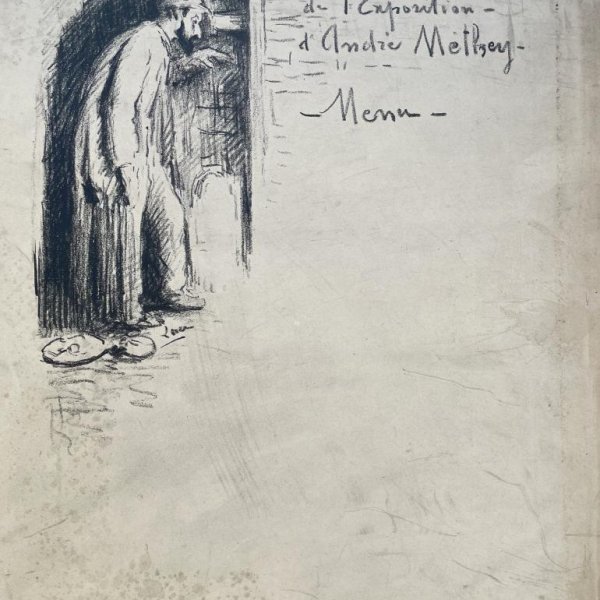 de l'Exposition -
d'André Methey -
- Menu -